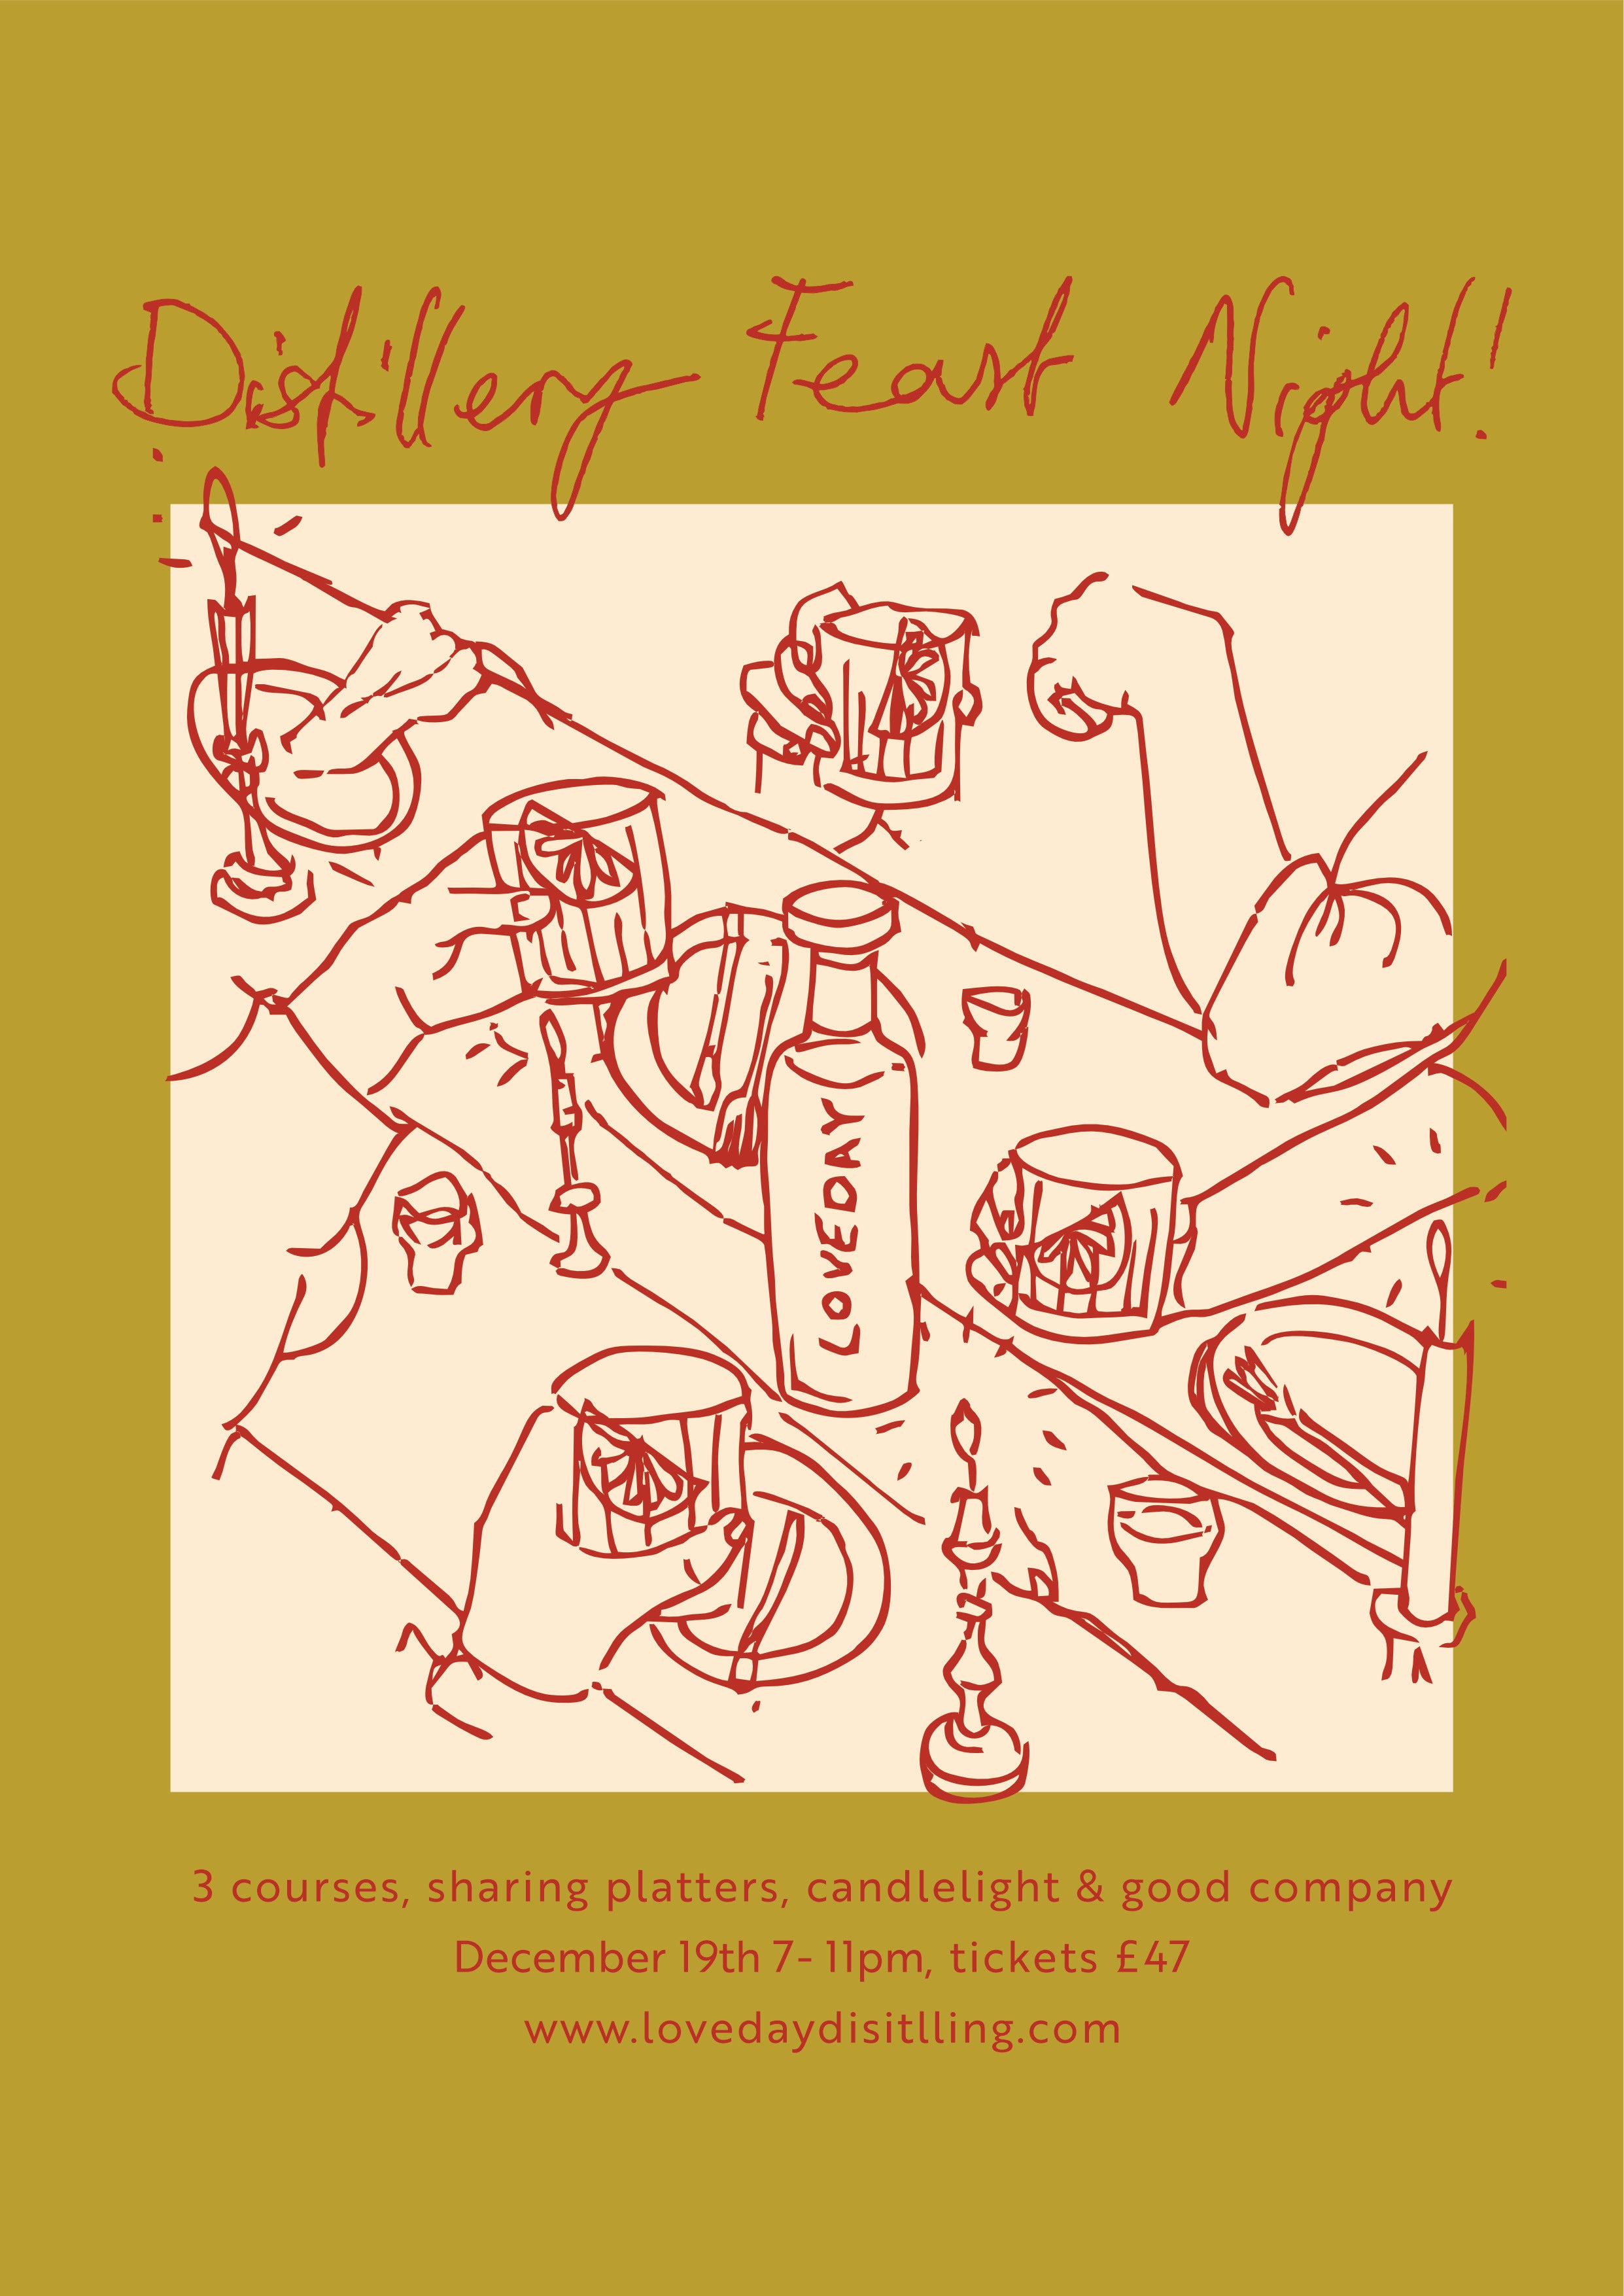 Distillery Feast Night!
LOVEDAY
3 courses, sharing platters, candlelight & good company
December 19th 7- 11pm, tickets £47
www.lovedaydisitlling.com